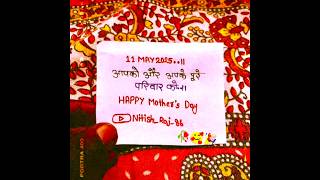 11 MAY 2025..!!
आपको और आपके पूरे
परिवार को
HAPPY Mother's Day
Nitish_Raj_86
PORTRA 400